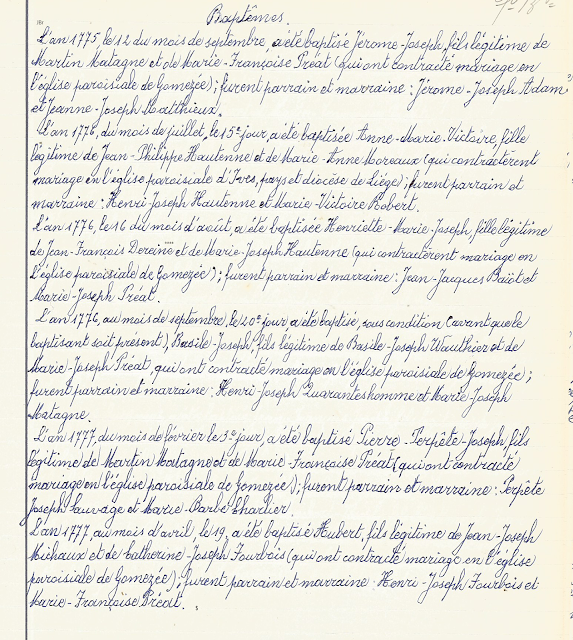 Baptêmes.
L'an 1775, le 12 du mois de septembre, a été baptisé Jérome-Joseph, fils légitime de
Martin Matagne et de Marie-Françoise Préat (qui ont contracté mariage en
l'église paroisiale de Gomezée); furent parrain et marraine: Jérome-Joseph Adam
et Jeanne-Joseph Matthieux.
L'an 1776, du mois de juillet, le 15e jour, a été baptisée Anne-Marie-Victoire, fille
légitime de Jean-Philippe Hautenne et de Marie-Anne Moreaux (qui contractèrent
mariage en l'église paroisiale d'Ives, pays et diocèse de Liége); furent parrain et
marraine: Henri-Joseph Hautenne et Marie-Victoire Robert.
L'an 1776, le 16 du mois d'août, a été baptisée Henriette-Marie-Joseph, fille légitime
de Jean-François Dereine et de Marie-Joseph Hautenne (qui contractèrent mariage en
l'église paroisiale de Gomezée); furent parrain et marraine: Jean-Jacques Baiot et
Marie-Joseph Préat.
L'an 1776, au mois de septembre, le 20e jour, a été baptisé, sous condition (avant que le
baptisant soit présent), Basile-Joseph, fils légitime de Basile-Joseph Wauthier et de
Marie-Joseph Préat, qui ont contracté mariage en l'église paroisiale de Gomezée;
furent parrain et marraine: Henri-Joseph Quarantehomme et Marie-Joseph
Matagne.
L'an 1777, du mois de février le 3e jour, a été baptisé Pierre-Perpête-Joseph, fils
légitime de Martin Matagne et de Marie-Françoise Préat (qui ont contracté
mariage en l'église paroisiale de Gomezée); furent parrain et marraine: Perpête
Joseph Sauvage et Marie-Barbe Charlier.
L'an 1777, au mois d'avril, le 19, a été baptisé Hubert, fils légitime de Jean-Joseph
Michaux et de Catherine-Joseph Fourbois (qui ont contracté mariage en l'église
paroisiale de Gomezée); furent parrain et marraine: Henri-Joseph Fourbois et
Marie-Françoise Préat.